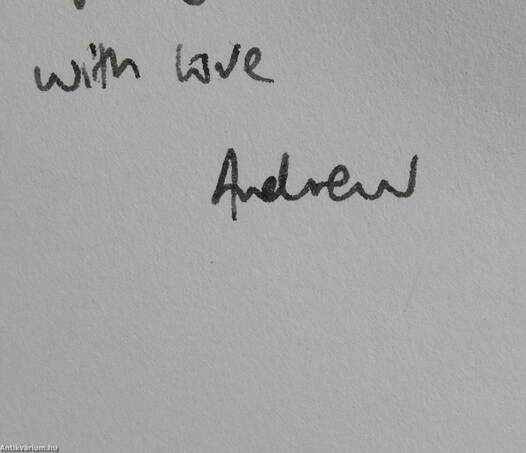 with love
Andrew
Antikvárium.hu